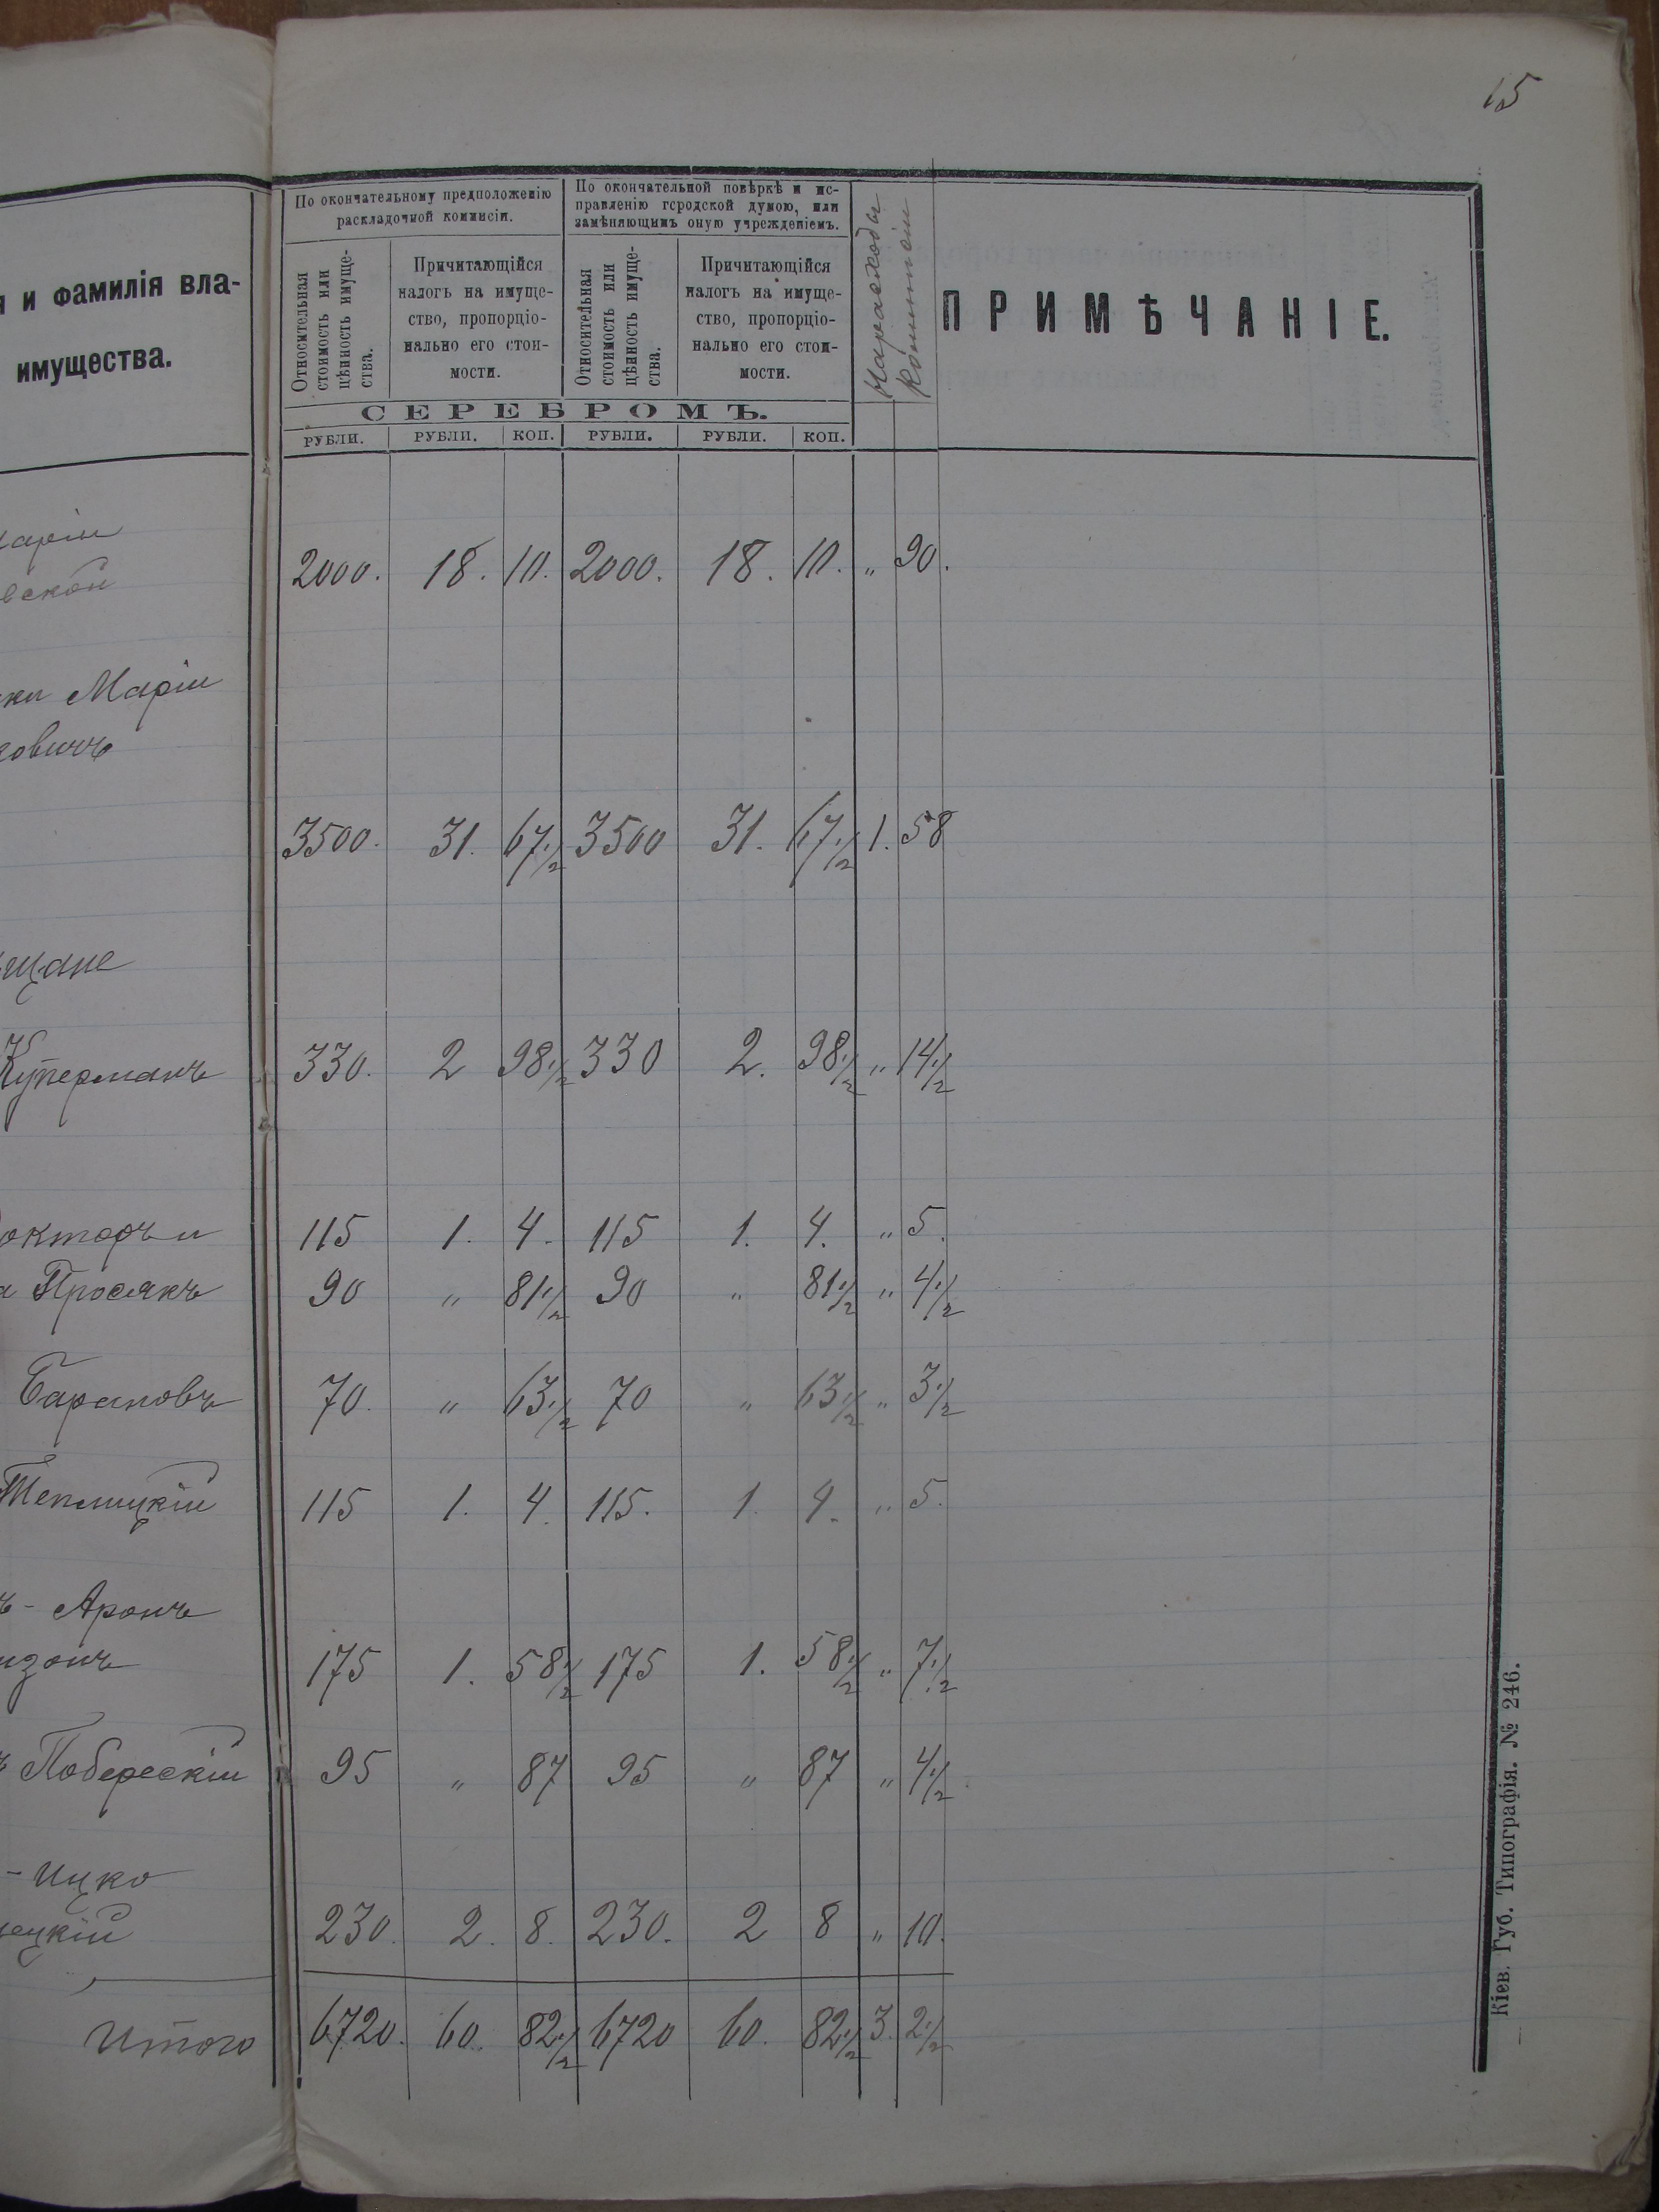 15
и фамилія вла-
имущества.
По окончательному предположенію
раскладочной коммисіи.
По окончательной повѣркѣ и ис-
правленію городской думою, или
замѣняющимъ оную учрежденіемъ.
Относительная
стоимость или
цѣнность имуще-
ства.
Причитающійся
налогъ на имуще-
ство, пропорціо-
нально его стои-
мости.
Относительная
стоимость или
цѣнность имуще-
ства.
Причитающійся
налогъ на имуще-
ство, пропорціо-
нально его стои-
мости.
На расходы
Коммисіи
ПРИМѢЧАНІЕ.
СЕРЕБРОМЪ.
РУБЛИ. РУБЛИ. КОП. РУБЛИ. РУБЛИ. КОП.
аріи
вской
2000. 18. 10. 2000. 18. 10. „ 90.
ки Маріи
овичъ
3500. 31. 67 1/2 3500 31. 67 1/2 1. 58
щане
Куперманъ 330. 2 98 1/2 330 2. 98 1/2 „ 14 1/2
окторъ и 115 1. 4. 115 1. 4. „ 5.
а Просякъ 90 „ 81 1/2 90 „ 81 1/2 „ 4 1/2
Барановъ 70. „ 63 1/2 70 „ 63 1/2 „ 3 1/2
Теплицкій 115 1. 4. 115. 1. 4. „ 5.
ъ - Аронъ
изонъ 175 1. 58 1/2 175 1. 58 1/2 „ 7 1/2
ъ Побережскій 95 „ 87 95 „ 87 „ 4 1/2
- Ицко
ецкій 230. 2. 8. 230. 2 8 „ 10.
Итого 6720. 60. 82 1/2 6720 60. 82 1/2 3. 2 1/2
Кіев. Губ. Типографія. № 246.